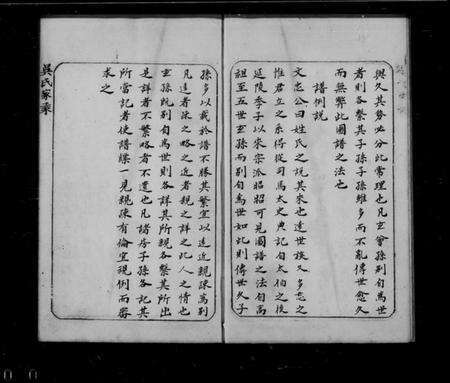 與久其勢必分此常理也凡玄會孫別自為世
者則各繫其子孫子孫雖多而不亂傳世愈久
而無弊此圖譜之法也
譜例說
文忠公曰姓氏之說其來也遠世談久多忘之
惟君立之系得從司馬太史典記自太伯之後
延陵季子以來宗派昭昭可見圖譜之法自高
祖至五世玄孫而別自為世如此則傳世久子
孫多以載於譜不勝其繁宜以遠近親疎為別
凡遠者疎之略之近者親之詳之此人之情也
玄孫既別自為世則各詳其所親各繫其所出
是詳者不繁略者不遺也凡諸房子孫各記其
所當記者使譜牒一見親疎有倫宜視例而審
求之
吳氏家乘